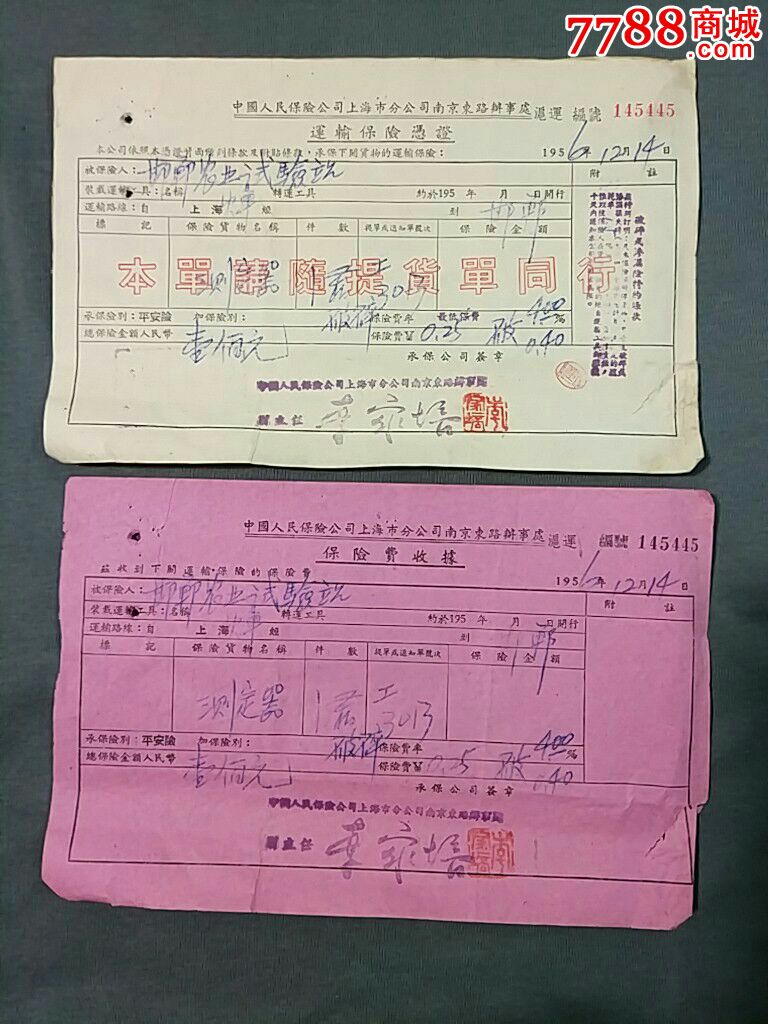 7788商城
中國人民保險公司上海市分公司南京東路辦事處 滬運 編號 145445
運輸保險憑證
本公司依照本憑證背面條列條款及附貼條款,承保下開貨物的運輸保險: 1956年12月14日
被保險人: 邯鄲农业试驗站 附 註
裝載運輸工具:名稱 火車 轉運工具 約於195 年 月 日開行
運輸路線:自 上海 經 到 邯鄲
標記 保險貨物名稱 件數 提單或通知單號次 保險金額
本單請隨提貨單同行
測定器 1 3013
承保險別:平安險 加保險別: 破碎 保險費率 最低保費 400%
總保險金額人民幣 壹佰元 保險費 0.25 破 0.40
承保公司簽章
中國人民保險公司上海市分公司南京東路辦事處
副主任
中國人民保險公司上海市分公司南京東路辦事處 滬運 編號 145445
保險費收據
茲收到下開運輸保險的保險費 1956年12月14日
被保險人: 邯鄲农业试驗站 附 註
裝載運輸工具:名稱 火車 轉運工具 約於195 年 月 日開行
運輸路線:自 上海 經 到 邯鄲
標記 保險貨物名稱 件數 提單或通知單號次 保險金額
測定器 1 3013
承保險別:平安險 加保險別: 破碎 保險費率 400%
總保險金額人民幣 壹佰元 保險費 0.25 破 0.40
承保公司簽章
中國人民保險公司上海市分公司南京東路辦事處
副主任